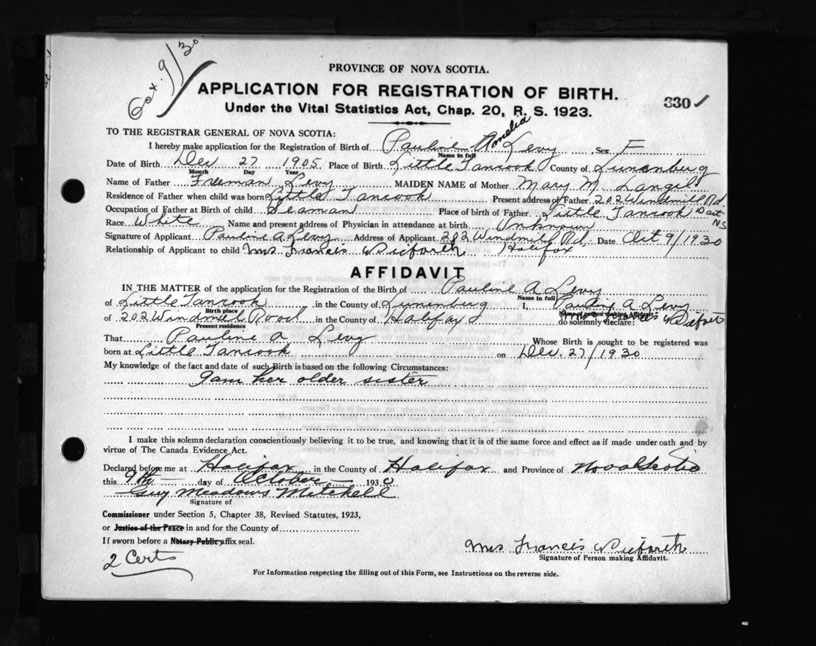 Oct. 9/30
PROVINCE OF NOVA SCOTIA.
APPLICATION FOR REGISTRATION OF BIRTH.
330
Under the Vital Statistics Act, Chap. 20, R. S. 1923.
TO THE REGISTRAR GENERAL OF NOVA SCOTIA:
I hereby make application for the Registration of Birth of Pauline Amelia Levy, Sex F
Name in full
Date of Birth Dec 27 1905 Place of Birth Little Tancook County of Lunenburg
Month Day Year
Name of Father Freeman Levy MAIDEN NAME of Mother Mary M. Langil
Residence of Father when child was born Little Tancook Present address of Father 202 Windmill Rd.
Occupation of Father at Birth of child Seaman Place of birth of Father Little Tancook Dart NS
Race White Name and present address of Physician in attendance at birth Unknown
Signature of Applicant Pauline A Levy Address of Applicant 202 Windmill Rd, Date Oct 9/1930
Relationship of Applicant to child Mrs Francis Halifax
AFFIDAVIT
IN THE MATTER of the application for the Registration of the Birth of Pauline A Levy
Name in full
of Little Tancook in the County of Lunenburg I, Pauline A Levy
Birth place
of 202 Windmill Road in the County of Halifax do solemnly declare:
Present residence
That Pauline A Levy Whose Birth is sought to be registered was
born at Little Tancook on Dec. 27/1930
My knowledge of the fact and date of such Birth is based on the following Circumstances:
I am her older sister
I make this solemn declaration conscientiously believing it to be true, and knowing that it is of the same force and effect as if made under oath and by
virtue of The Canada Evidence Act.
Declared before me at Halifax in the County of Halifax and Province of Nova Scotia
this 9th day of October 1930
Guy Meadows Mitchell
Signature of
Commissioner under Section 5, Chapter 38, Revised Statutes, 1923,
or Justice of the Peace in and for the County of
If sworn before a Notary Public affix seal.
Mrs Francis
2 Certs
Signature of Person making Affidavit.
For Information respecting the filling out of this Form, see Instructions on the reverse side.